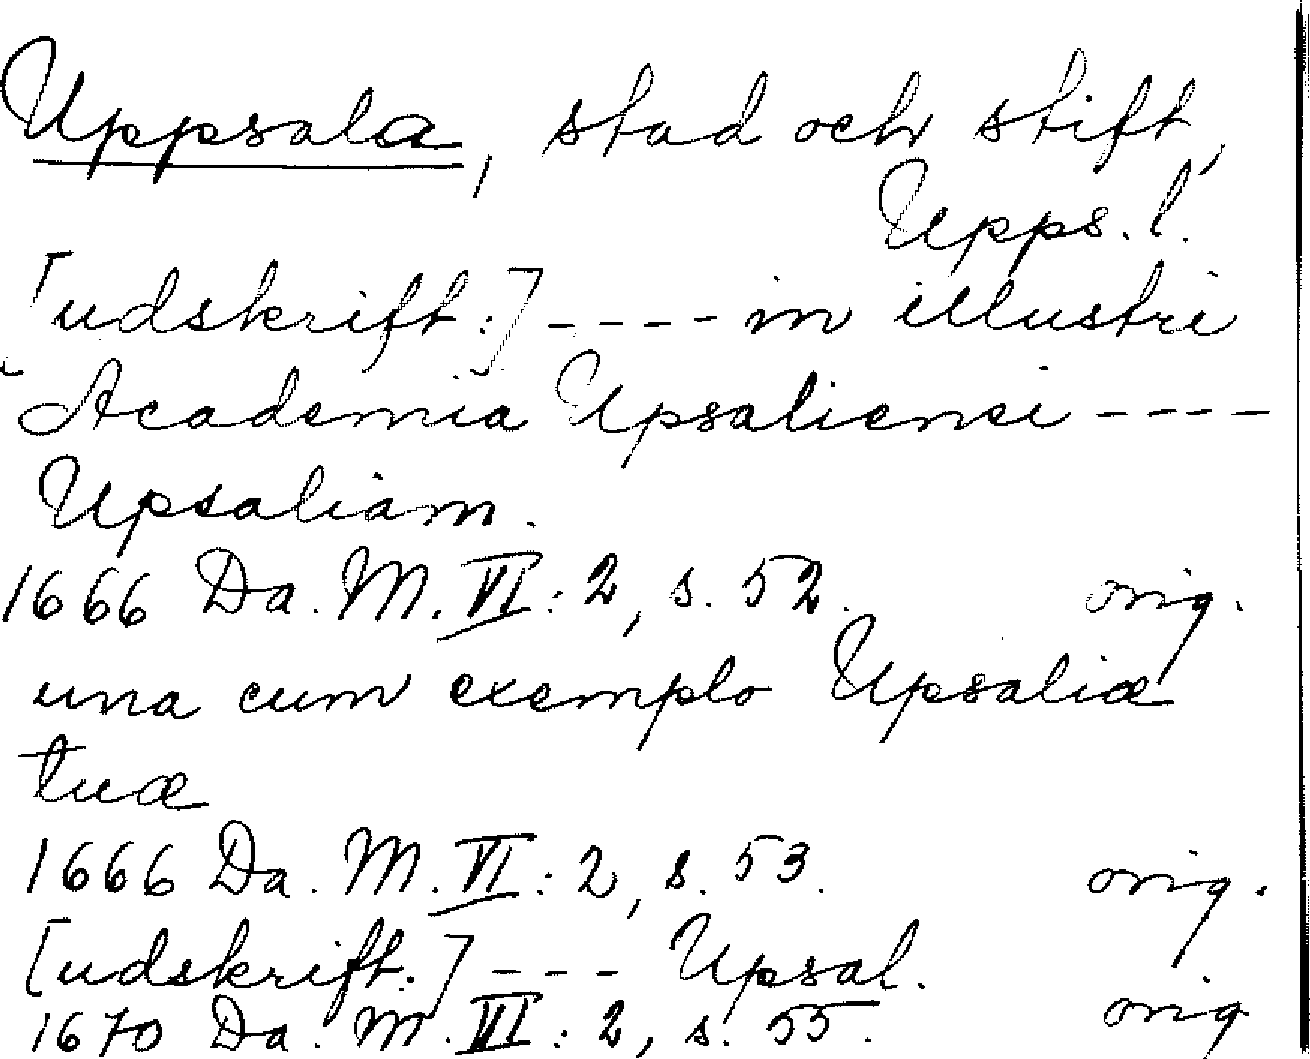 Uppsala, stad och stift,
Upps. l.
[udskrift:] ---- in illustri
Academia Upsaliensi ----
Upsaliam.
1666 Da. M. VI: 2, s. 52. orig.
una cum exemplo Upsaliæ
tuæ
1666 Da. M. VI: 2, s. 53. orig.
[udskrift:] --- Upsal.
1670 Da. M. VI: 2, s. 55. orig